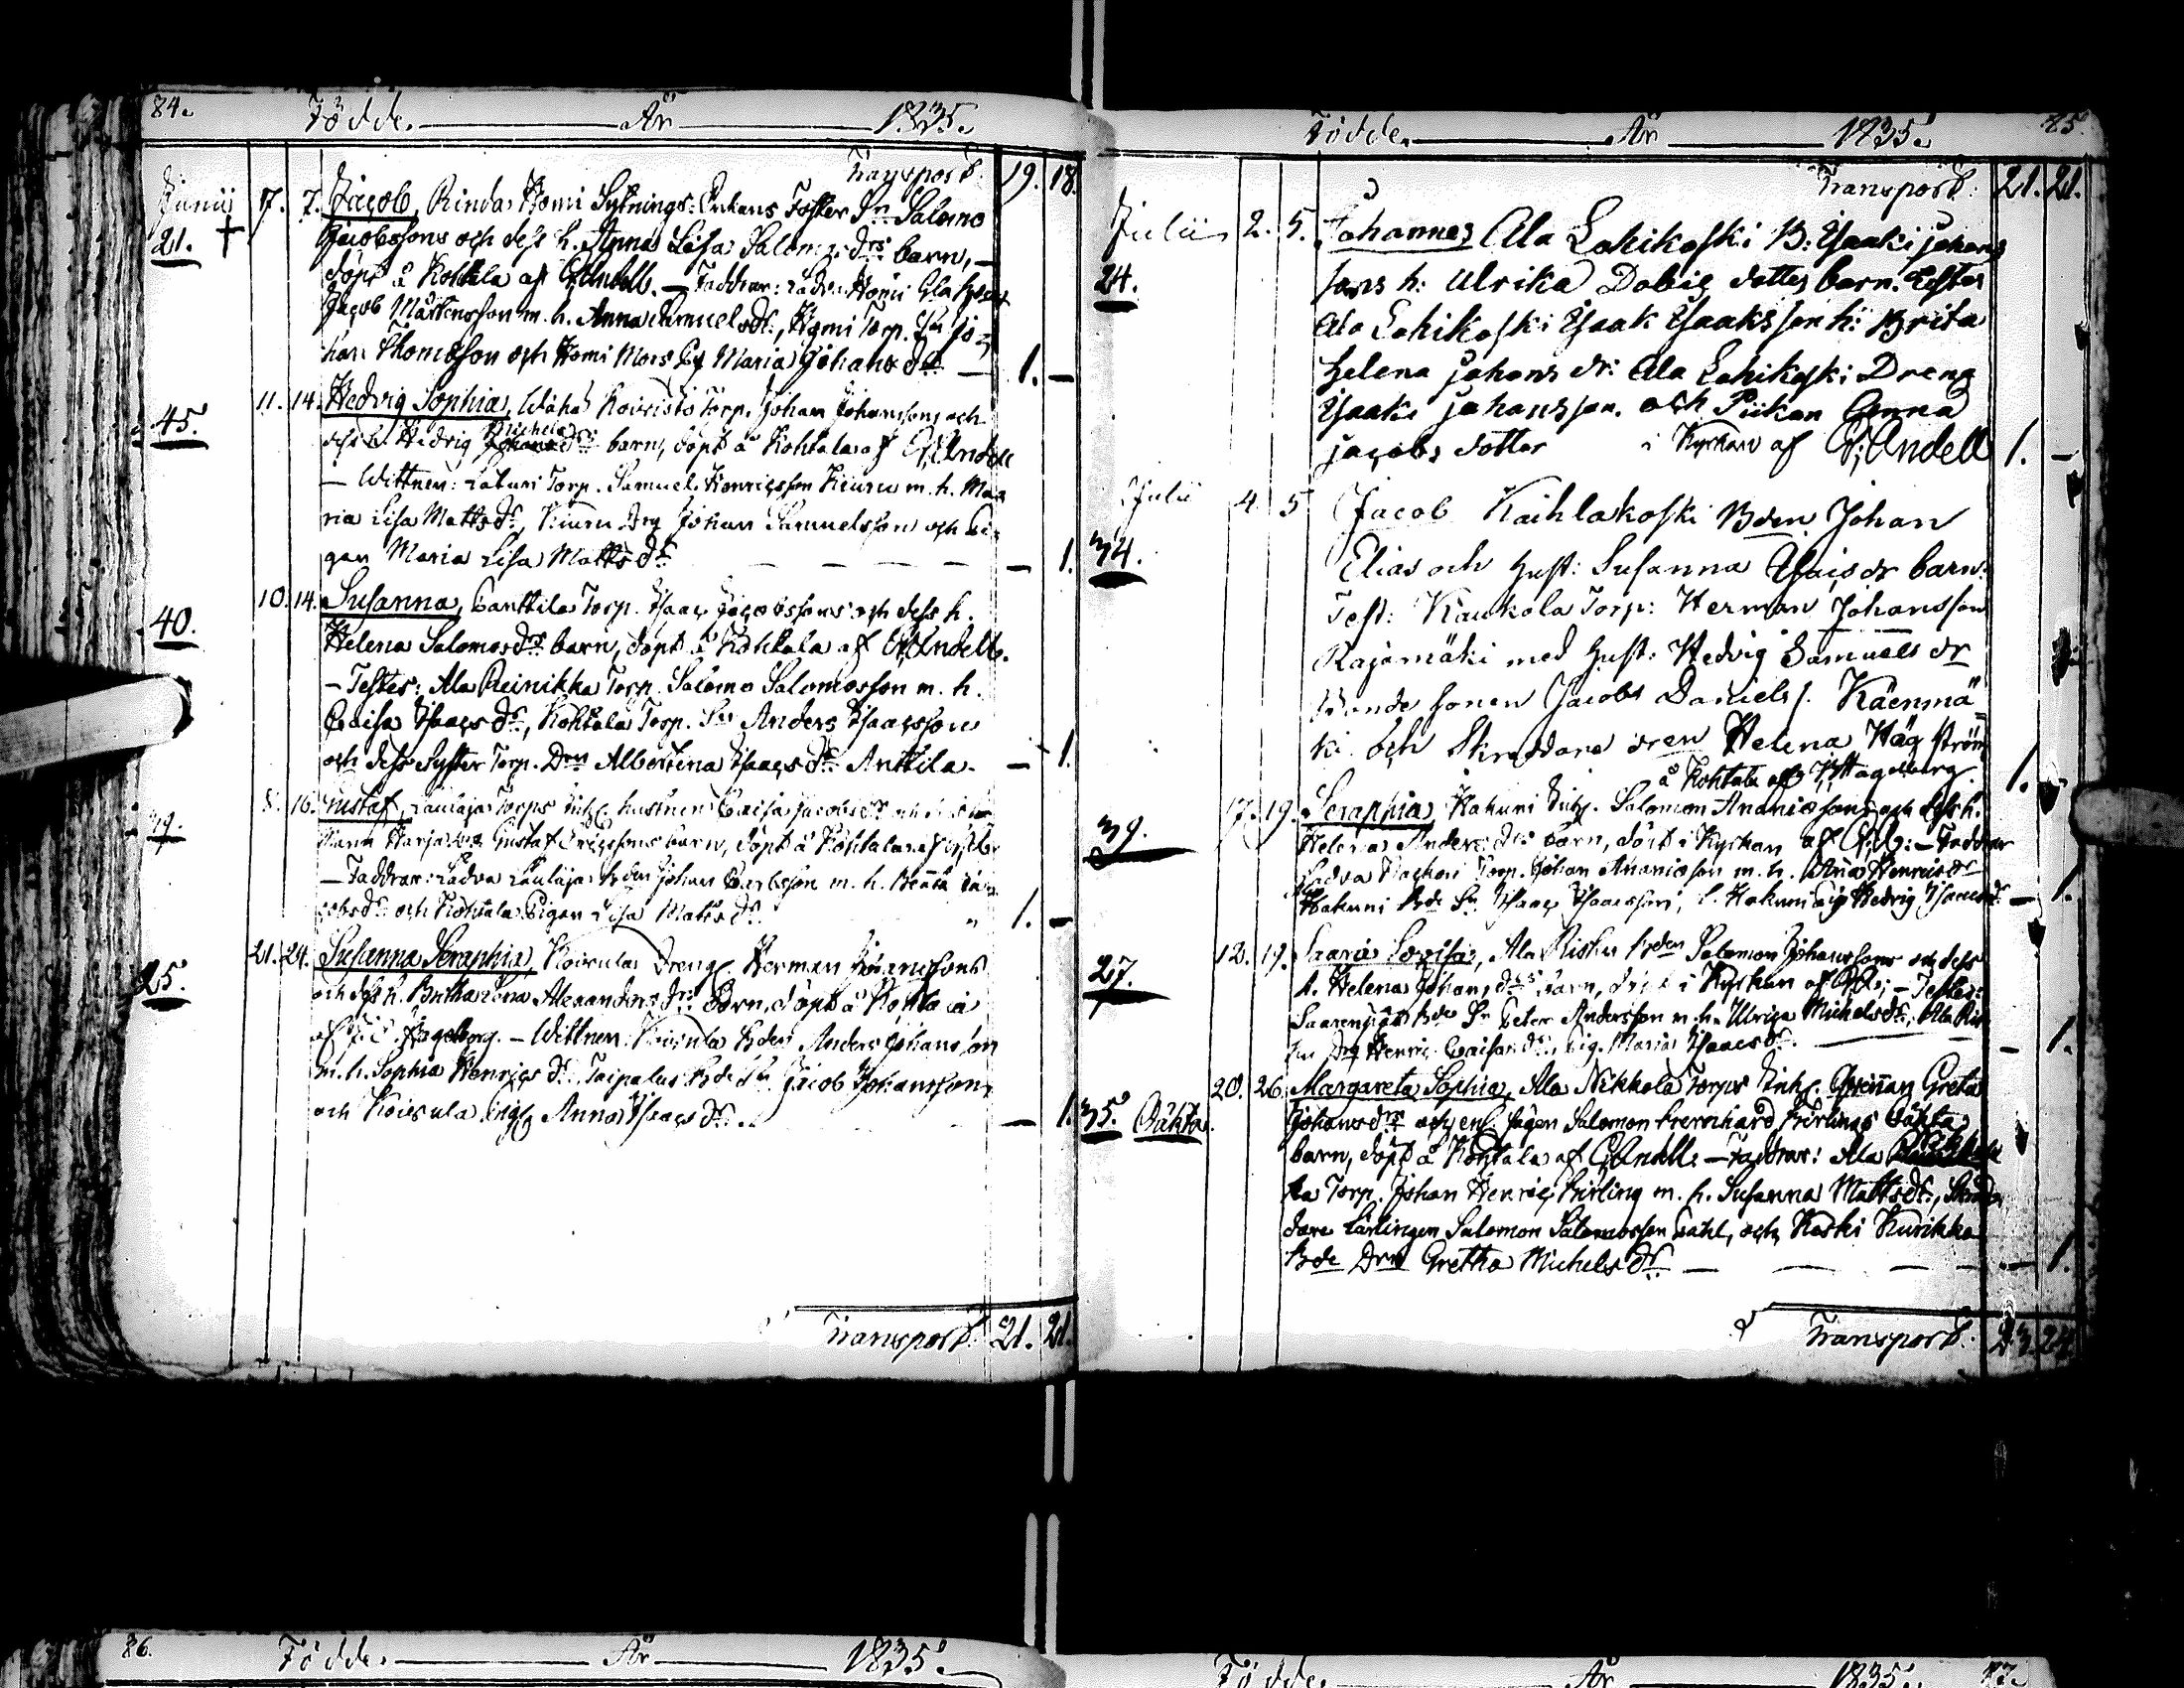 84. Födde. År 1835.
Transport. 19. 18.
Junii 7. 7. Jacob, Rinda Homi Sytnings: Enkans Foster Sn Salomo
21. † Jacobssons och dess h. Anna Lisa Salom: drs barn, —
döpt å Kohtala af G. Andell. — Faddrar: Ladva Homi
Jacob Mårtensson m. h. Anna Samuelsdr., Homi Torp. Sn Jo-
han Thomsson och Homi Mors Pig Maria Johans dr — 1. —
11. 14. Hedvig Sophia, Wäha Koivisto Torp. Johan Johanssons och
45. Michels
dess h. Hedvig dr: barn, döpt å Kohtala af G. Andell
— Wittnen: Laturi Torp. Samuel Henricsson Kiuru m. h. Ma-
ria Lisa Mattsdr, Kiuru Drg Johan Samuelsson och Pi-
gan Maria Lisa Mattsdr — — — — — 1.
10. 14. Susanna, Canttila Torp. Isaac Jacobssons och dess h.
40. Helena Salomosdrs barn, döpt å Kohtala af G. Andell.
— Testes: Ala Reinikka Torp. Salomo Salomosson m. h.
Caisa Isaacsdr, Kohtala Torp. Sn Anders Isaacsson
och dess Syster Torp. Drn Albertina Isaacs dr Anttila. — 1.
8. 16. Gustaf, Laulaja Torps Inh: hustrun Caisa Jacobsdr och
Gustaf Ericssons barn, döpt å Kohtala af
— Faddrar: Ladva Laulaja Bden Johan Carlsson m. h.
cobsdr och Kohtala Pigan Lisa Mattsdr. 1. —
21. 24. Susanna Seraphia, Koivula Dreng. Herman Johanssons
25. och dess h. Britha Lena Alexanders drs Barn, döpt å Kohtala
af Hageberg. — Wittnen: Koivula Bden Anders Johansson
m. h. Sophia Henrics dr., Taipalus Bde Sn Jacob Johansson,
och Koivula Anna Isaacs dr. — 1.
Transport. 21. 21.
Födde. År 1835. 85
Transport: 21. 21.
Julii 2. 5. Johannes Ala Lohikoski B: Isaaki johans
24. sons h: Ulrika Dabis dotter barn. Testes
Ala Lohikoski Isaak Isaaksson h: Brita
Helena johans dr: Ala Lohikoski Dreng
Isaaki johansson. och Piikan Anna
jacobs dotter i Kyrkan af G. Andell 1. —
Julii 4. 5 Jacob Kaihlakoski Bden Johan
34. Elias och Hust: Susanna Isaics dr barn:
Test: Kaukola Torp: Herman Johansson
Rajamäki med Hust: Hedvig Samuels dr
Bonde sonen Jacob Daniels s. Käenmä-
ki och Skreddare dren Helena Häg ström
å Kohtala af Hageberg. 1.
17. 19. Seraphia, Hakuni Inh. Salomon Ananiæsons och dess h.
39. Helena Anders drs barn, döpt i Kyrkan af G. A: — Faddrar
Ladva Torp. Johan Ananiæson m. h. Anna Henricsdr
Hakuni Bde Sn Isaac Isaacsson, l. Hakuni Pig Hedvig Isaacsdr. — 1.
12. 19. Maria Lovisa, Ala Risku Bden Salomon Johanssons och dess
27. h. Helena Johans drs barn, döpt i Kyrkan af G. A; — Testes:
Saarenpää Bde Sn Peter Andersson m. h. Ulrica Michelsdr., Ala Ris-
ku Drg Henric Caisandr, Pig. Maria Isaacsdr. — — 1.
20. 26. Margareta Sophia, Ala Nikkola Torps Inh. Qvinnan Greta
35. Oäkta. Johansdrs och enl. sägen Salomon Bernhard Birlings Oäkta
barn, döpt å Kohtala af G. Andell. — Faddrar: Ala
la Torp. Johan Henric Birling m. h. Susanna Mattsdr.,
dare Lärlingen Salomon Salomosson Dahl, och Koski Kurikka
Bde Drn Gretha Michels dr. — — — — — 1.
Transport. 23. 24.
86. Födde. År 1835.
Födde. År 1835. 87.